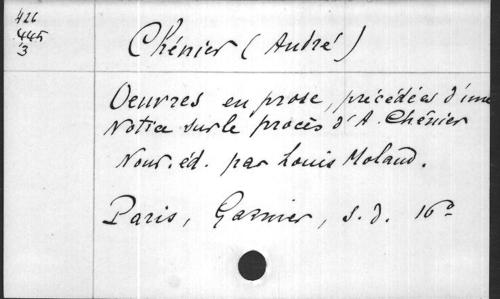 426
445
3
Chénier (André)
Oeuvres en prose, précédées d'une
Notice sur le procès d'A. Chénier
Nouv. éd. par Louis Moland.
Paris, Garnier, s.d. 16°